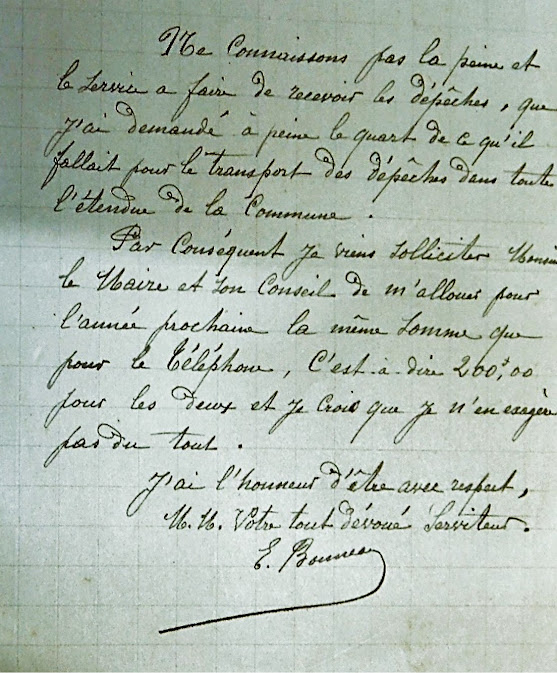 Ne connaissons pas la peine et
le service a faire de recevoir les dépêches, que
j'ai demandé à peine le quart de ce qu'il
fallait pour le transport des dépêches dans toute
l'étendue de la Commune.
Par Conséquent je viens solliciter Monsieur
le Maire et son Conseil de m'allouer pour
l'année prochaine la même somme que
pour le Téléphone, C'est à dire 200f,00
pour les deux et je crois que je n'en exagère
pas du tout.
J'ai l'honneur d'être avec respect,
M.M. Votre tout dévoué Serviteur.
E. Bonneau